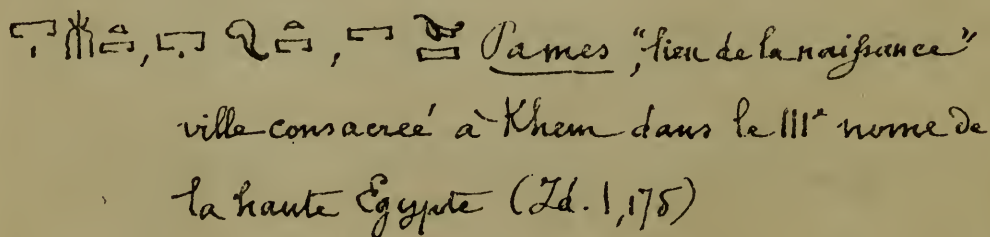 𓉐𓄟𓏏𓉐, 𓉐 𓏏𓉐, 𓉐 𓏏𓉐 Pames "lieu de la naissance"
ville consacreé à Khem dans le IIIᵉ nome de
la haute Egypte (Id. I, 175)